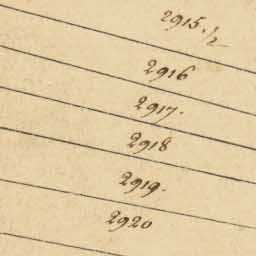 2915.1/2
2916
2917.
2918
2919.
2920